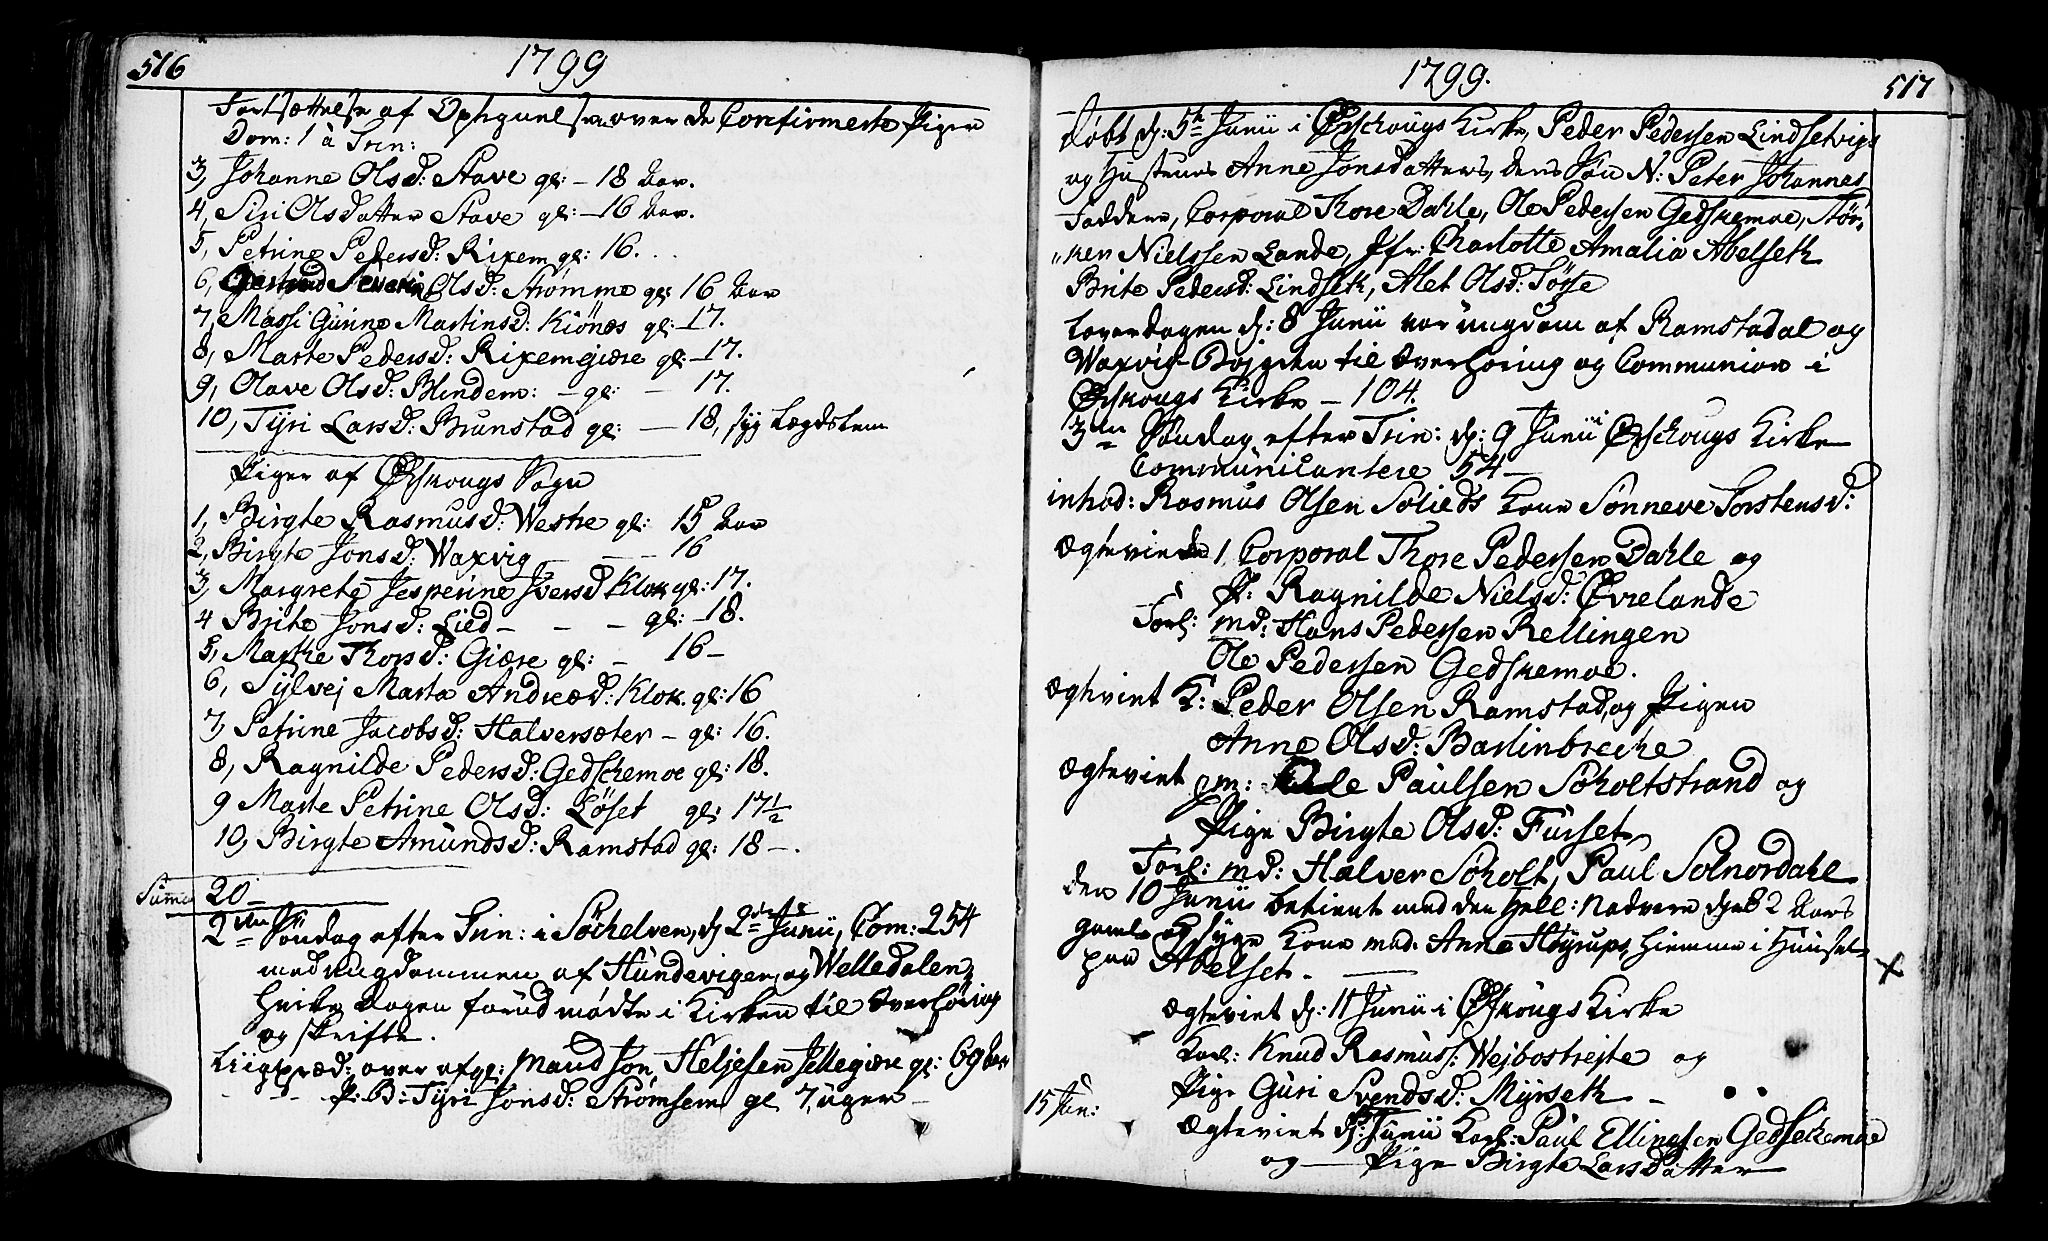 516
1799
Fortsættelse af Opregnelsen over de Confirmerte Piger
Dom: 1 à Trin:
3, Johanne Olsd: Stave gl: – 18 Aar.
4, Siri Olsdatter Stave gl: – 16 Aar.
5, Petrine Pedersd: Rixem gl: 16.
6, Olsd: Strømme gl: 16 Aar
7, Massi Gurine Martinsd: Kiönes gl: – 17.
8, Marte Pedersd: Rixemgiære gl: – 17.
9, Olave Olsd: Blindem: – gl: – 17.
10, Tyri Larsd: Brunstad gl: – 18, syg Lægdslem
Piger af Ørskougs Sogn
1, Birgte Rasmusd: Westre gl: 15 Aar
2, Birgte Jonsd: Waxvig – – – 16
3, Margrete Jesperine Iversd Klok gl: 17.
4 Brite Jonsd: Lied – – – gl: – 18.
5, Marthe Thorsd: Giære gl: – 16 –
6, Sylvej Marta Andreæd: Klok. gl: 16
7, Petrine Jacobsd: Halversæter – gl: 16.
8, Ragnilde Pedersd: Gedschemoe gl: 18.
9 Marte Petrine Olsd: Løset gl: 17½
10, Birgte Amundsd: Ramstad gl: 18 –.
Suma 20 –
2den Søndag efter Trin: i Søchelven, d 2den Junii, Com: 254
med ungdommen af Hundevigen, og Welledalen,
hvilke Dagen forud mødte i Kirken til Overhøring
og skrifte.
Liigpræd: over afgl: mand Jon Heljesen Jellegiære gl: 69 Aar
– – – P: B: Tyri Jonsd: Strømsem gl 7, uger –
1799.
517
døbt d: 5te Junii i Ørschougs Kirke, Peder Pedersen Lindsetvigs
og Hustrues Anne Jonsdatters, deres Søn N: Peter Johannes
Faddere, Corporal Thore Dahle, Ole Pedersen Gedskemoe, Stør-
"ker Nielssen Lande, Jfr: Charlotte Amalia Abelseth
Brite Pedersd: Lindseth, Alet Olsd: Tøsse
Løverdagen d: 8 Junii var ungdom af Ramstadal og
Waxvig-Bøygden til Overhøring og Communion i
Ørskougs Kirke – 104.
3den Søndag efter Trin: d: 9 Junii i Ørschougs Kirke
Communicantere 54 –
inhod: Rasmus Olsen Solieds Kone Sønneve Torstensd:
Ægteviede 1, Corporal Thore Pedersen Dahle og
P: Ragnilde Nielsd: Øvrelande
Forl: md: Hans Pedersen Rellingen
Ole Pedersen Gedskemoe.
Ægteviet K: Peder Olsen Ramstad, og Pigen
Anne Olsd: Barlinbrecke
Ægteviet gm: Ole Paulsen Søholtstrand og
Pige Birgte Olsd: Furset
Forl: md: Halver Søholt, Paul Solnordahl
den 10 Junii betient med den Hell: Nadvere den 82 Aars
gamle og syge Kone mad. Anne Høyrups, hiemme i Huuset
paa Abelset. –
Ægteviet d: 11 Junii i Ørskougs Kirke
Karl: Knud Rasmuss: Wejbostrejte og
Pige Guri Svendsd: Myrseth –
15 Jun:
Ægteviet d: Junii Karl: Paul Ellingsen Gedschemoe
og – Pige Birgte Larsdatter